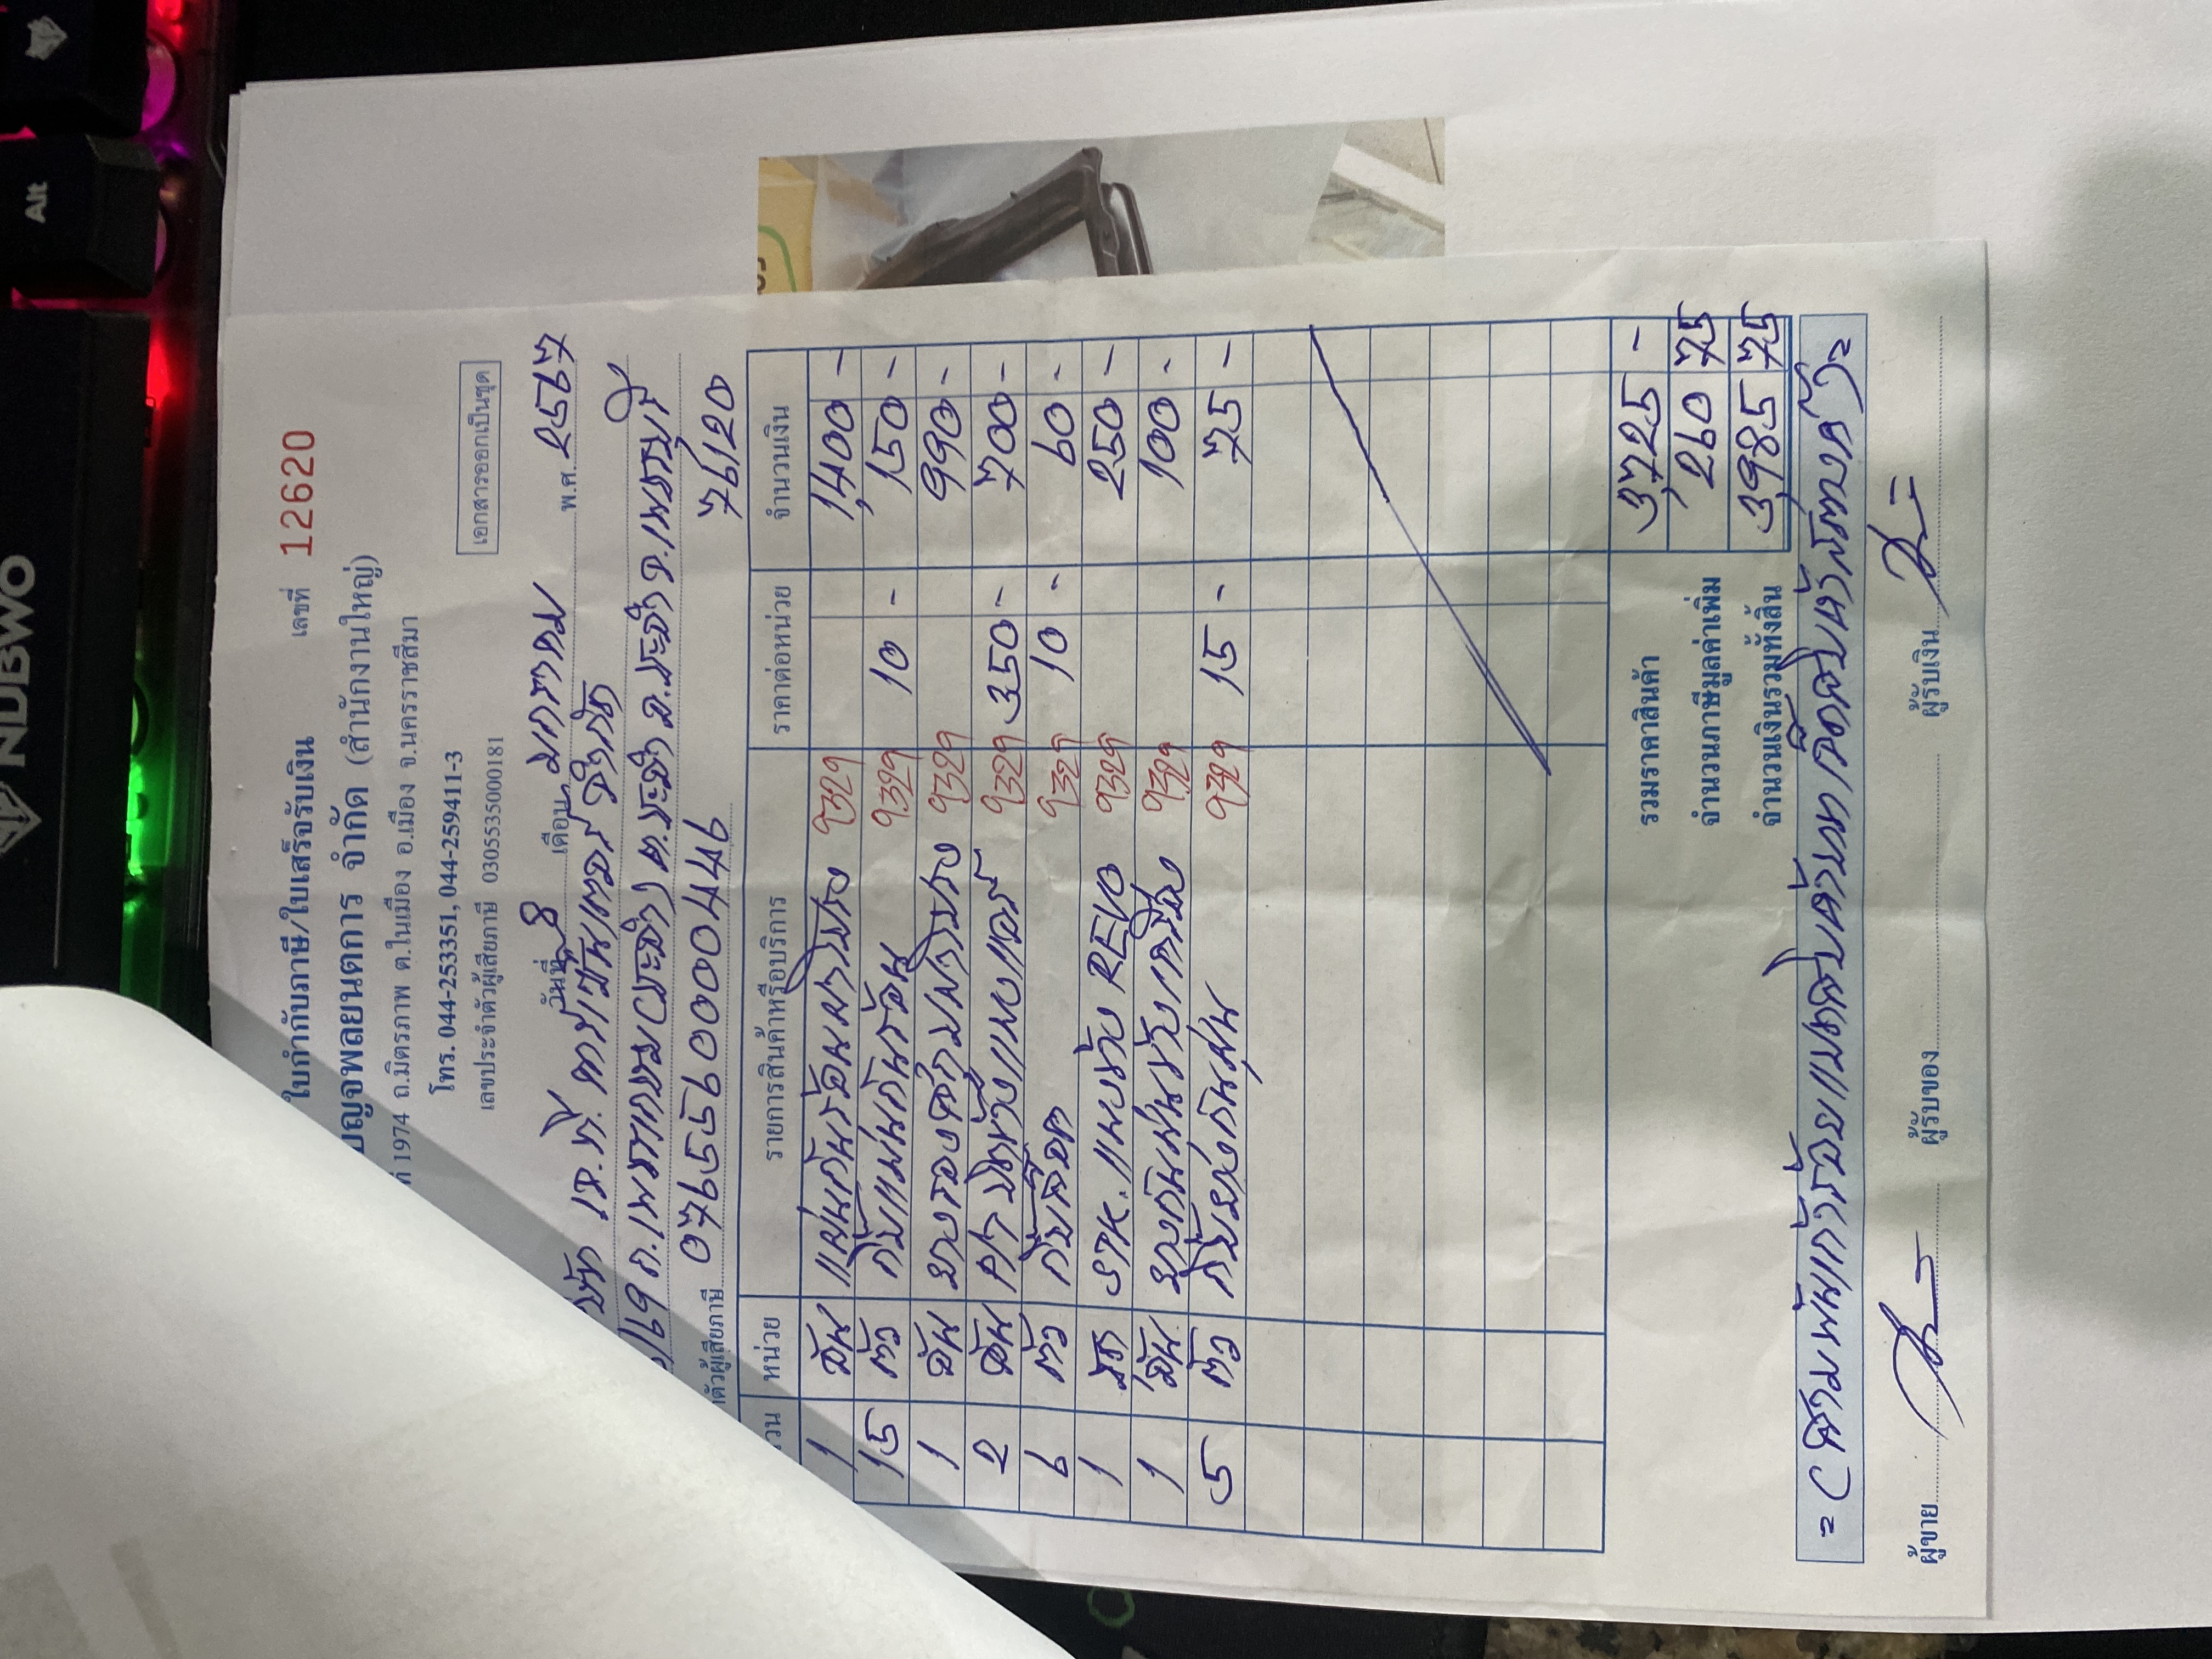 NUBWO
Alt
ใบกำกับภาษี/ใบเสร็จรับเงิน เลขที่ 12620
บุญจพลยนตการ จำกัด (สำนักงานใหญ่)
1974 ถ.มิตรภาพ ต.ในเมือง อ.เมือง จ.นครราชสีมา
โทร. 044-253351, 044-259411-3
เลขประจำตัวผู้เสียภาษี 0305535000181
เอกสารออกเป็นชุด
วันที่ 8 เดือน มกราคม พ.ศ. 2567
ษัท เจ.ที. คาร์เซ็นเตอร์ จำกัด
ถ.เพชรเกษม ต.ประจวบฯ อ.ประจวบฯ จ.ประจวบคีรีขันธ์
ตัวผู้เสียภาษี 0765590004496 76120
วน หน่วย รายการสินค้าหรือบริการ ราคาต่อหน่วย จำนวนเงิน
1 อัน แผ่นกันร้อนฝากระโปรง 9329 1,400 -
15 ตัว กิ๊บแผ่นกันร้อน 9329 10 - 150 -
1 อัน ยางรองฝากระโปรง 9329 990 -
2 อัน 9329 350 - 700 -
6 ตัว กิ๊บล็อค 9329 10 - 60 -
1 ชุด STK. แผงข้าง REVO 9329 250 -
1 อัน ยางกันฝุ่นข้างเครื่อง 9329 100 -
5 ตัว กิ๊บยางกันฝุ่น 9329 15 - 75 -
รวมราคาสินค้า 3,725 -
จำนวนภาษีมูลค่าเพิ่ม 260 75
จำนวนเงินรวมทั้งสิ้น 3,985 75
= ( สามพันเก้าร้อยแปดสิบห้าบาทเจ็ดสิบห้าสตางค์ ) =
ผู้ขาย ผู้รับของ ผู้รับเงิน